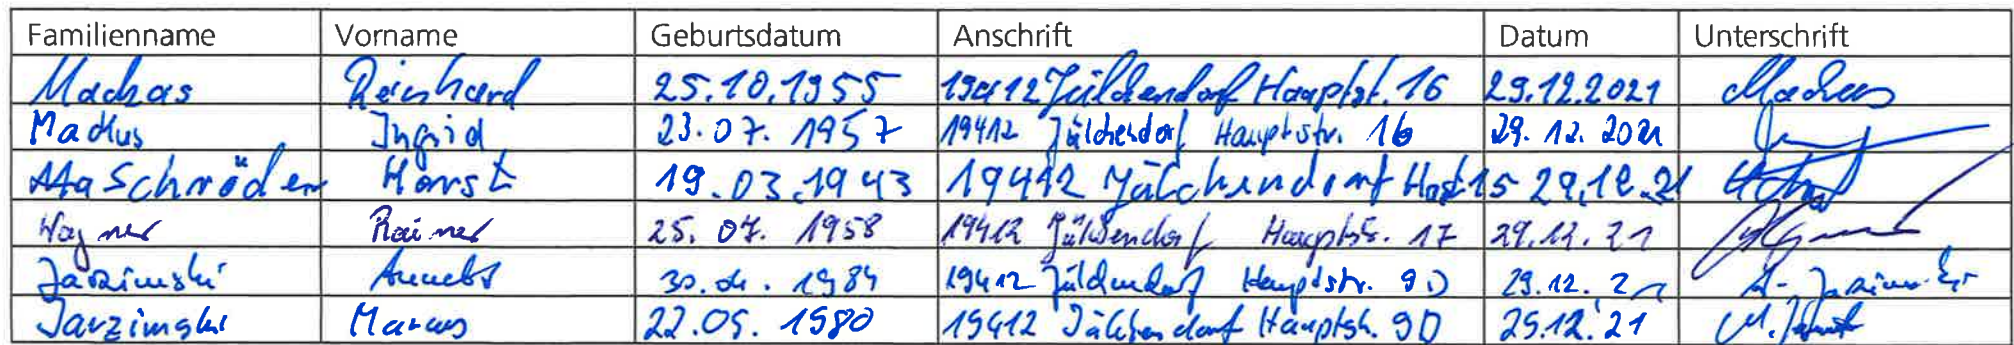 Familienname Vorname Geburtsdatum Anschrift Datum Unterschrift
Machas Reinhard 25.10.1955 19412 Jülchendorf Hauptst. 16 29.12.2021 Machas
Ingrid 23.07.1957 19412 Jülchendorf Hauptstr. 16 29.12.2021
Schröder Horst 19.03.1943 19412 Jülchendorf 15 29.12.21
Wagner Rainer 25.07.1958 19412 Jülchendorf Hauptstr. 17 29.12.21
Jarzimski Annett 1984 19412 Jülchendorf Hauptstr. 9D 29.12.21 A. Jarzimski
Jarzimski Marcus 22.05.1980 19412 Jülchendorf Hauptstr. 9D 29.12.21